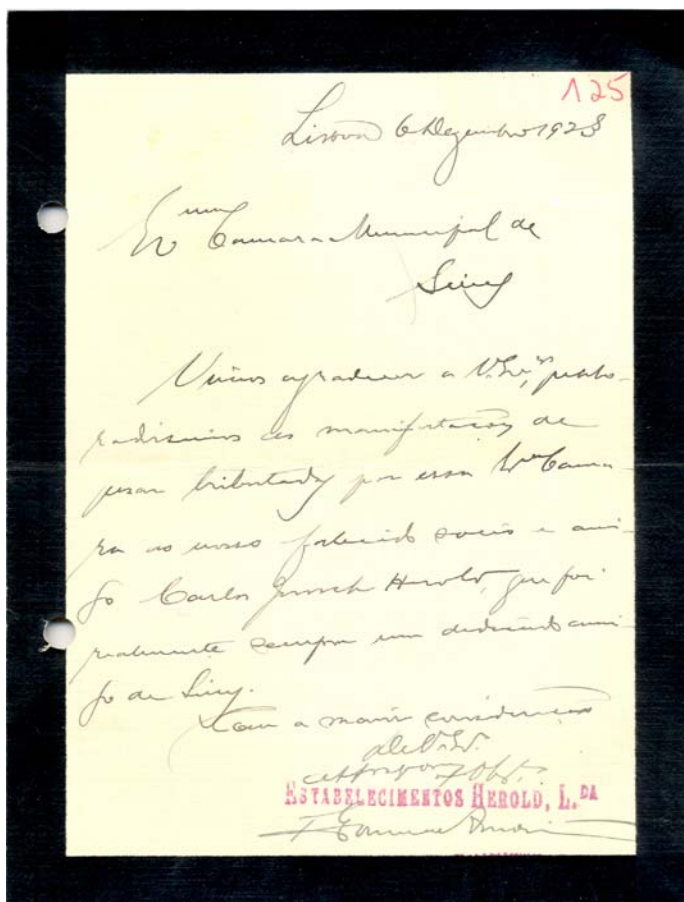 125
Lisboa 6 Dezembro 1928
Exma Camara Municipal de
Sines
Vimos agradecer a V. Exas, penho-
radissimos as manifestações de
pesar tributadas por essa Exma Cama-
ra ao nosso falecido socio e ami-
go Carlos Herold, que foi
realmente sempre um dedicado ami-
go de Sines.
Com a maior consideração
de V. Ex.
ESTABELECIMENTOS HEROLD, L.DA